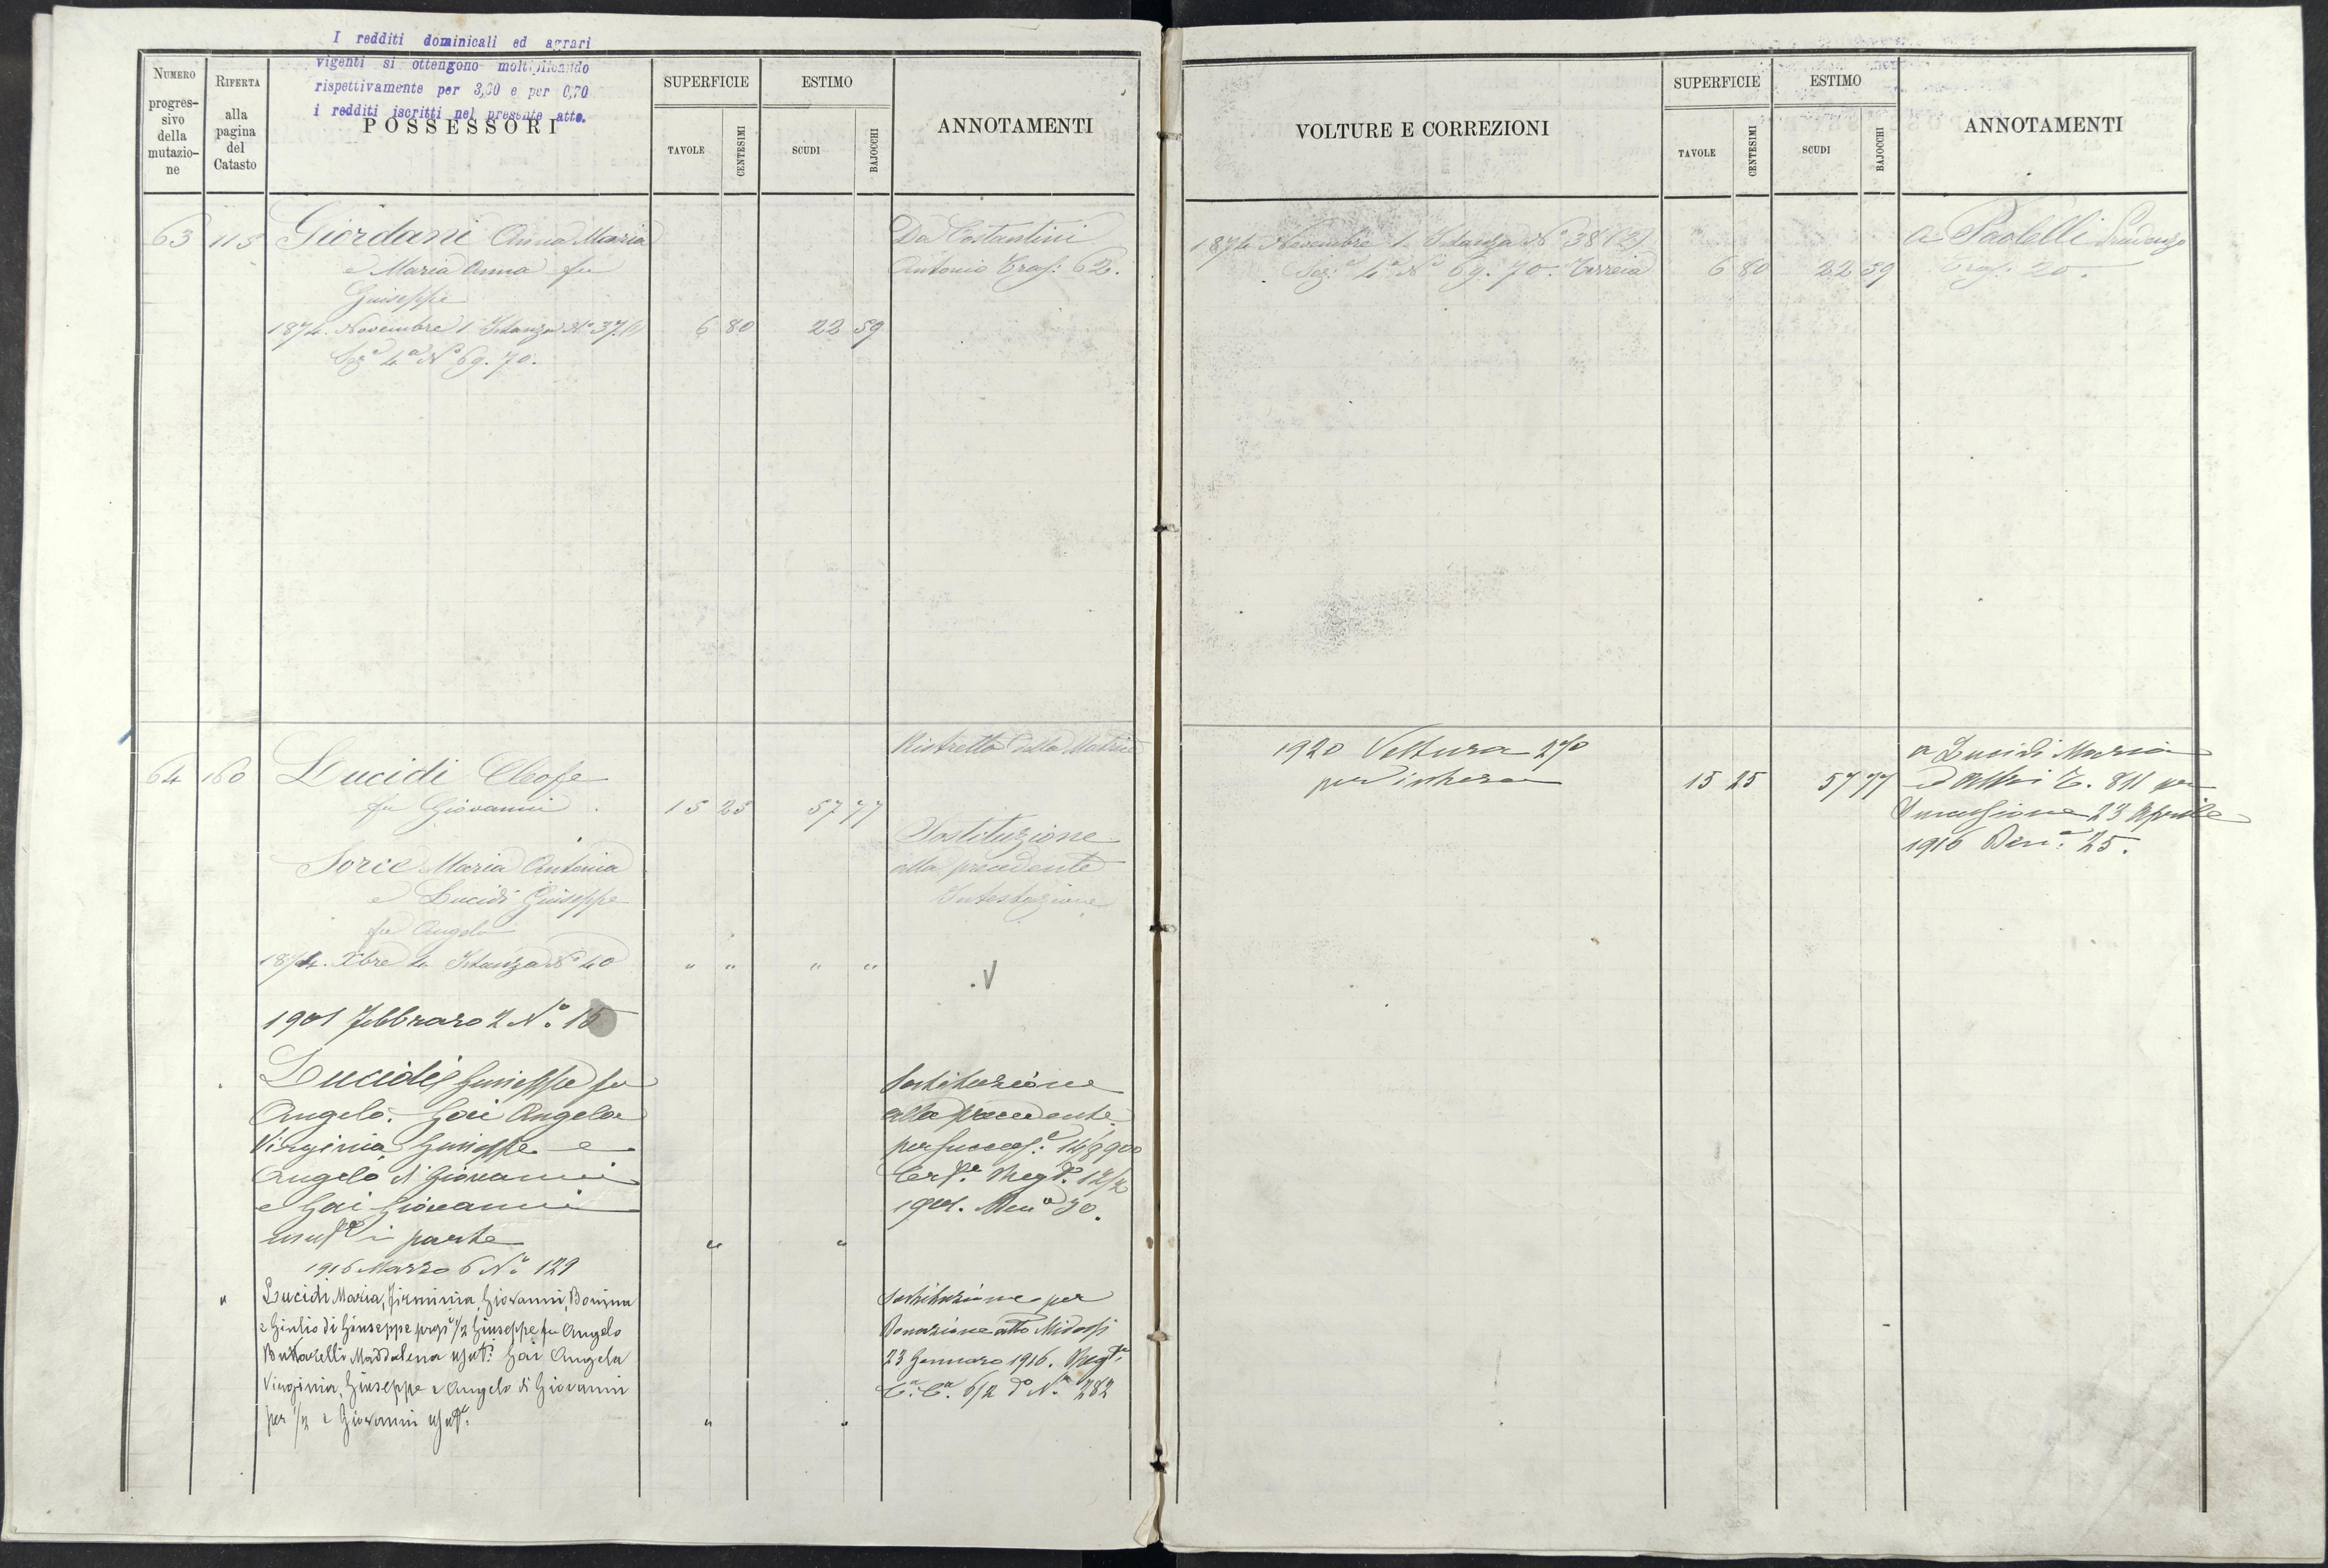 I redditi dominicali ed agrari
vigenti si ottengono moltiplicando
rispettivamente per 3,00 e per 0,70
i redditi iscritti nel presente atto.
NUMERO
progres-
sivo
della
mutazio-
ne
RIFERTA
alla
pagina
del
Catasto
POSSESSORI
SUPERFICIE
TAVOLE
CENTESIMI
ESTIMO
SCUDI
BAJOCCHI
ANNOTAMENTI
63 115 Giordani Anna Maria
e Maria Anna fu
Giuseppe
1874. Novembre 1. Istanza N.° 37.
Sez.e 4.a N.° 69. 70.
6 80 22 59
Da Costantini
Antonio Trasf: 62.
64 160 Lucidi Cleofe
fu Giovanni
15 25 57 77
Ristretto della Matrice
Sorce Maria Antonia
e Lucidi Giuseppe
fu Angelo
1874. Xbre 4 Istanza N.° 40
" " " "
Sostituzione
alla precedente
Intestazione
1901 Febbraro 2 N.° 15
Lucidi Giuseppe fu
Angelo. Gai Angela
Virginia Giuseppe e
Angelo di Giovanni
e Gai Giovanni
usuf.o in parte
" "
Sostituzione
alla precedente
per success.e 14/8 900
1901. 30.
1916 Marzo 6 N.° 129
" Lucidi Maria, Firminia, Giovanni,
e Giulio di Giuseppe 1/2 Giuseppe fu Angelo
Maddalena Gai Angela
Virginia, Giuseppe e Angelo di Giovanni
per 1/2 e Giovanni
" "
Sostituzione per
Donazione atto
23 Gennaro 1916.
6/2 N.° 282
VOLTURE E CORREZIONI
SUPERFICIE
TAVOLE
CENTESIMI
ESTIMO
SCUDI
BAJOCCHI
ANNOTAMENTI
1874 Novembre 1. Istanza N.° 38 (2)
Sez.e 4.a N.° 69. 70.
6 80 22 59
a Paolelli
Trasf: 20.
1920 Voltura 270
per intero
15 25 57 77
a Lucidi Maria
ed altri T. 811 per
Successione 23 Aprile
1916 25.